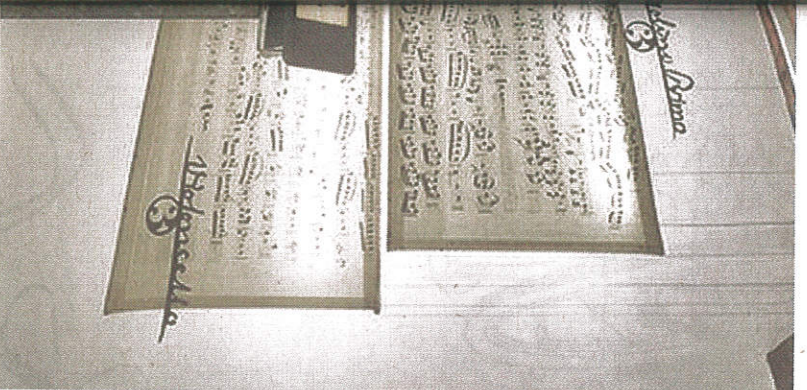 Violino Primo
3
Violoncello
3